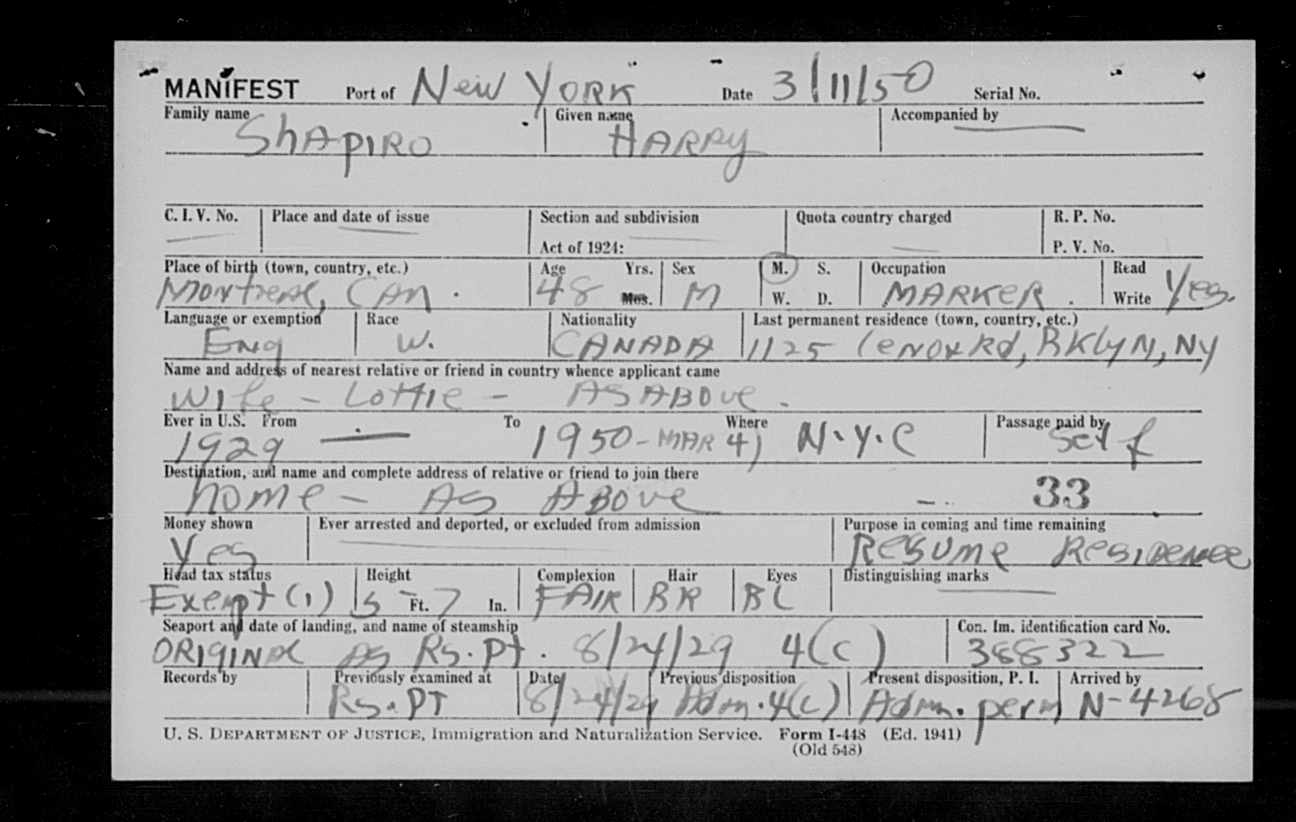 MANIFEST Port of New YORK Date 3/11/50 Serial No.
Family name Given name Accompanied by
ShAPIRO HARRy
C. I. V. No. Place and date of issue Section and subdivision Quota country charged R. P. No.
Act of 1924: P. V. No.
Place of birth (town, country, etc.) Age Yrs. Sex M. S. Occupation Read
Montreal, CAN. 48 Mos. M W. D. MARKER. Write Yes.
Language or exemption Race Nationality Last permanent residence (town, country, etc.)
Eng W. CANADA 1125 Lenox Rd, BKLyN, Ny
Name and address of nearest relative or friend in country whence applicant came
Wife - Lottie - AS ABOVE.
Ever in U.S. From To Where Passage paid by
1929 - 1950 - MAR 4) N.Y.C Self
Destination, and name and complete address of relative or friend to join there
home - AS ABOVE - 33
Money shown Ever arrested and deported, or excluded from admission Purpose in coming and time remaining
Yes Resume Residence
Head tax status Height Complexion Hair Eyes Distinguishing marks
Exempt (1) 5 Ft. 7 In. FAIR BR BL
Seaport and date of landing, and name of steamship Con. Im. identification card No.
ORIGINAL AS Rs. Pt. 8/24/29 4(c) 388322
Records by Previously examined at Date Previous disposition Present disposition, P. I. Arrived by
Rs. PT 8/24/29 Adm. 4(c) Adm. perm N-4268
U. S. DEPARTMENT OF JUSTICE, Immigration and Naturalization Service. Form I-448 (Ed. 1941)
(Old 548)